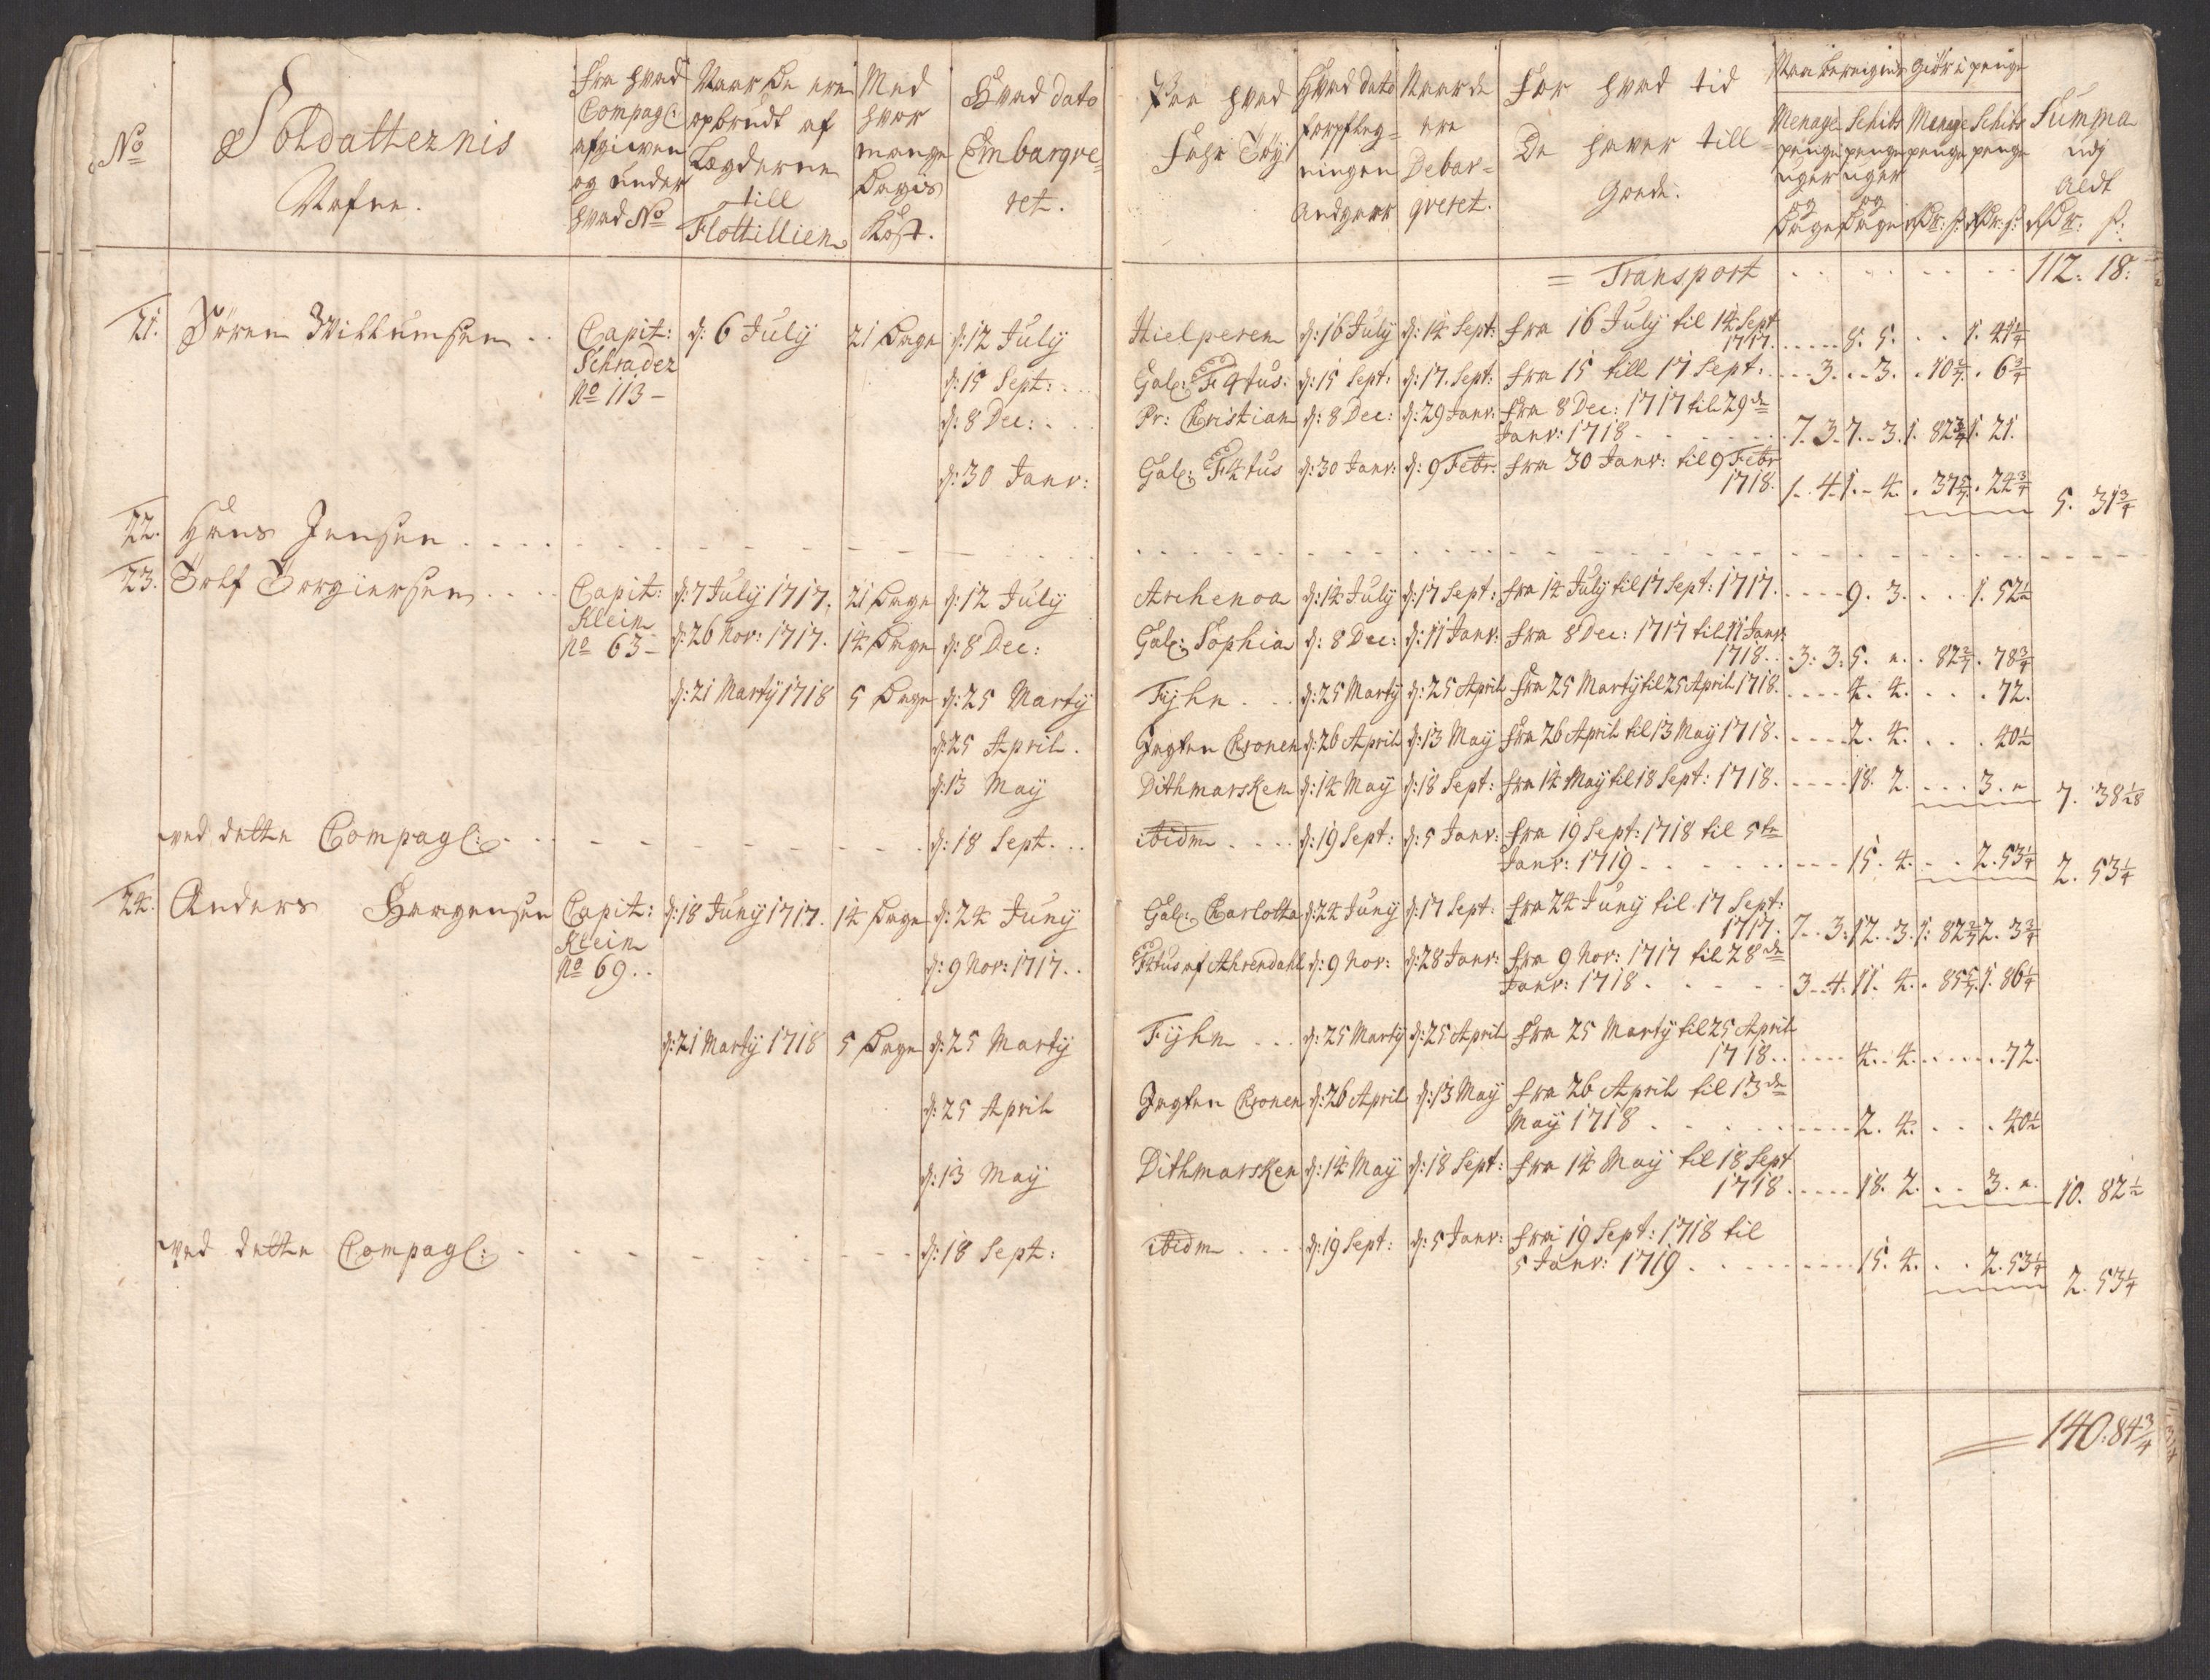 No
Soldatternis
Nafne.
Fra hvad
Compagl:
afgiven
og under
hvad No
Naar De ere
opbrudt af
Lægderne
till
Flottillien
Med
hvor
mange
Dagis
Kost.
Hvad dato
Embarqve-
ret.
Paa hvad
Fahr Tøy
Hvad Dato
forpfleg-
ningen
Andgaar
Naar de
ere
Debar-
qveret.
For hvad tid
De haver till
Gode.
Giør i penge
Menage
penge
uger
og
Dage
Schibs
penge
uger
og
Dage
Menage
penge
rDr: s:
Schibs
penge
rDr: s:
Summa
udj
Aldt
rDr: s:
= Transport . . . . . . 112. 18:
21. Sören Willumsen . . Capit: d: 6 July 21 Dage d: 12 July Hielperen d: 16 July d: 14 Sept: fra 16 July til 14 Sept
1717. . . . . 8. 5. . . 1. 41 1/4
Schrader
No 113 –
d: 15 Sept: Gal: F4tus: d: 15 Sept: d: 17. Sept: fra 15 till 17 Sept: . . . 3. . 3. . 10 2/7 . 6 3/4
d: 8 Dec: Pr: Christian d: 8 Dec: d: 29 Janv: fra 8 Dec: 1717 til 29de
Janv: 1718 . . . 7. 3. 7. 3. 1. 82 2/7 1. 21.
d: 30 Janv: Gal: F4tus d: 30 Janv: d: 9 Febr: fra 30 Janv: til 9 Febr
1718. 1. 4. 1. 4. . 37 5/7 . 24 3/4 5. 31 3/4
22. Hans Jensen . . . .
23. Tolf Torgiersen . . . . Capit: d: 7 July 1717. 21 Dage d: 12 July Archenoa d: 14 July d: 17 Sept: fra 14 July til 17 Sept: 1717. . . . . 9. 3. . . . 1. 52 1/2
Klein
No 63 – d: 26 Nov: 1717. 14 Dage d: 8 Dec: Gal: Sophia d: 8 Dec: d: 11 Janv: fra 8 Dec: 1717 til 11 Janv:
1718. . 3. 3. 5. „. . 82 2/7 . 78 3/4
d: 21 Martij 1718 5 Dage d: 25 Martij Fyhn . . . d: 25 Martij d: 25 April fra 25 Martij til 25 April 1718. . . . . 4. 4. . . . 72.
d: 25 April. Jagten Cronen d: 26 April d: 13 May fra 26 April til 13 May 1718. . . . . 2. 4. . . . 40 1/2
d: 13 May Dithmarsken d: 14 May d: 18 Sept: fra 14 May til 18 Sept: 1718. . . . . 18. 2. . . . 3. „ 7. 38
ved dette Compagl: . . . d: 18 Sept. . . ibidm . . . . d: 19 Sept: d: 5 Janv: fra 19 Sept: 1718 til 5te
Janv: 1719 . . . . 15. 4. . . 2. 53 1/4 2. 53 1/4
24. Anders Haagensen Capit: d: 18 Juny 1717. 14 Dage d: 24 Juny Gal: Charlotta d: 24 Juny d: 17 Sept: fra 24 Juny til 17 Sept:
1717. 7. 3. 12. 3. 1. 82 2/7 2. 3 3/4
Klein
No 69. . d: 9 Nov: 1717. . F4tus af Ahrendahl d: 9 Nov: d: 28 Janv: fra 9 Nov: 1717 til 28de
Janv: 1718 . . . . . 3. 4. 11. 4. . 85 5/7 1. 86 1/4
d: 21 Martij 1718 5 Dage d: 25 Martij Fyhn . . . d: 25 Martij d: 25 April fra 25 Martij til 25 April
1718. . . . . 4. 4. . . . . . 72.
d: 25 April Jagten Cronen d: 26 April d: 13 May fra 26 April til 13de
May 1718 . . . . . 2. 4. . . . 40 1/2
d: 13 May Dithmarsken d: 14 May d: 18 Sept: fra 14 May til 18 Sept
1718. . . . . 18. 2. . . 3. „. 10. 82 1/2
ved dette Compagl: . . . d: 18 Sept: ibidm . . . . d: 19 Sept: d: 5 Janv: fra 19 Sept: 1718 til
5 Janv: 1719 . . . . 15. 4. . . 2. 53 1/4 2. 53 1/4
= 140: 84 3/4